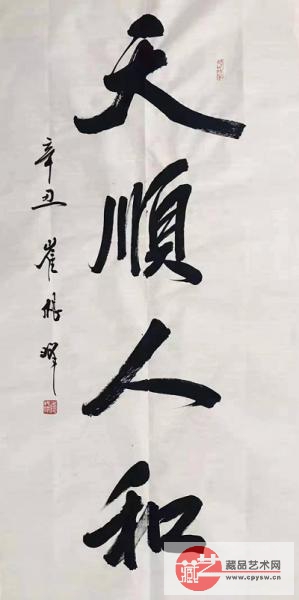 天順人和
辛丑 崔
藏艺
藏品艺术网
www.cpysw.cn